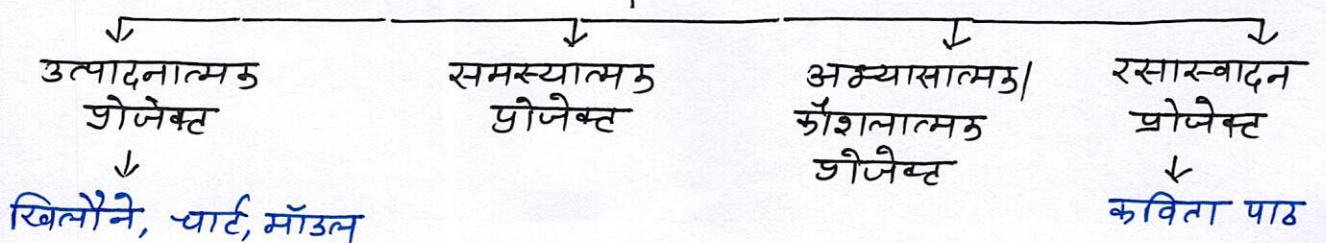 उत्पादनात्मक
प्रोजेक्ट
खिलौने, चार्ट, मॉडल
समस्यात्मक
प्रोजेक्ट
अभ्यासात्मक/
कौशलात्मक
प्रोजेक्ट
रसास्वादन
प्रोजेक्ट
कविता पाठ